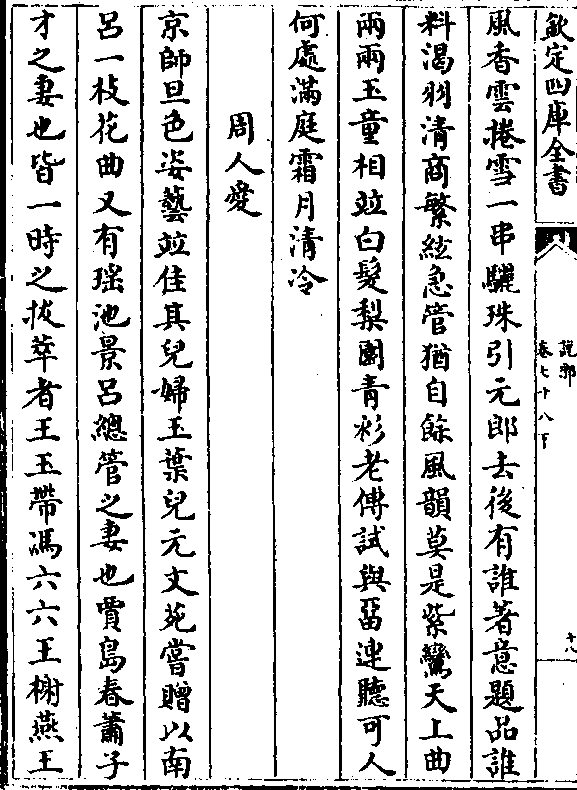 欽定四庫全書
說郛
卷七十八下
十八
風香雲捲雪一串驪珠引元郎去後有誰著意題品誰
料渴羽清商繁絃急管猶自餘風韻莫是紫鸞天上曲
兩兩玉童相竝白髮梨園青衫老傅試與留連聽可人
何處滿庭霜月清冷
周人愛
京師旦色姿藝竝佳其兒婦玉葉兒元文苑嘗贈以南
呂一枝花曲又有瑶池景呂總管之妻也賈島春蕭子
才之妻也皆一時之拔萃者王玉帶馮六六王榭燕王